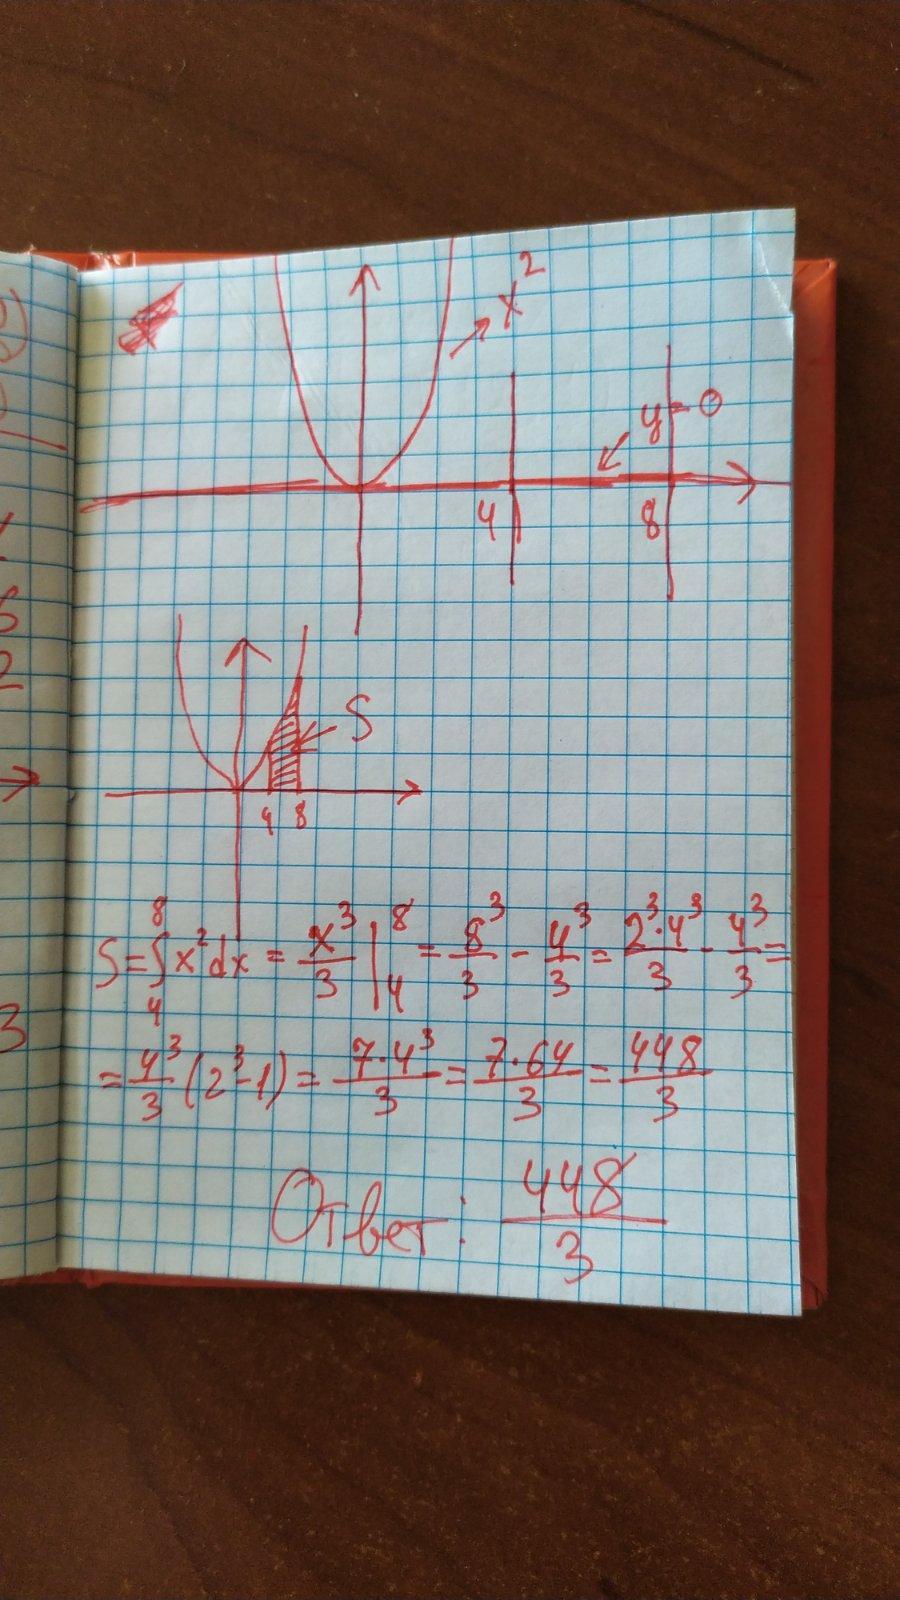 x²
y = 0
4 8
S
4 8
S = ∫₄⁸ x² dx = x³/3 |₄⁸ = 8³/3 - 4³/3 = 2³·4³/3 - 4³/3 =
= 4³/3 (2³-1) = 7·4³/3 = 7·64/3 = 448/3
Ответ: 448/3